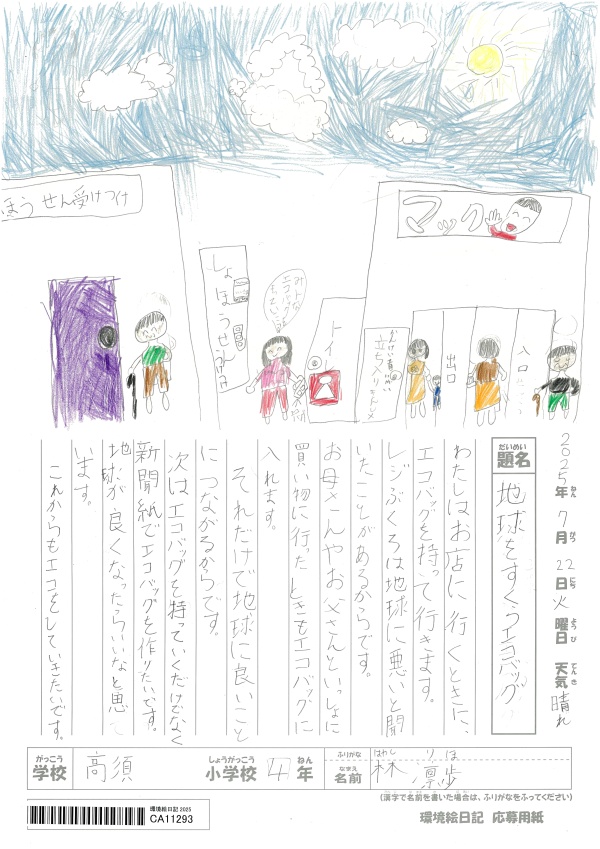 ほうせん受けつけ
マック
しょほうせん
トイレ
立ち入りきんし
出口
入口
エコバッグ
2025年 7月 22日 火曜日 天気 晴れ
ねん がつ にち ようび てんき
だいめい
題名
地球をすくうエコバッグ
わたしはお店に行くときに、
エコバッグを持って行きます。
レジぶくろは地球に悪いと聞
いたことがあるからです。
お母さんやお父さんといっしょに
買い物に行ったときもエコバッグに
入れます。
それだけで地球に良いこと
につながるからです。
次はエコバッグを持っていくだけでなく
新聞紙でエコバッグを作りたいです。
地球が良くなったらいいなと思て
います。
これからもエコをしていきたいです。
がっこう 学校 高須 しょうがっこう 小学校 4 ねん 年
ふりがな はやし りほ
なまえ 名前 林 凛歩
(漢字で名前を書いた場合は、ふりがなをふってください)
環境絵日記 2025
CA11293
環境絵日記 応募用紙